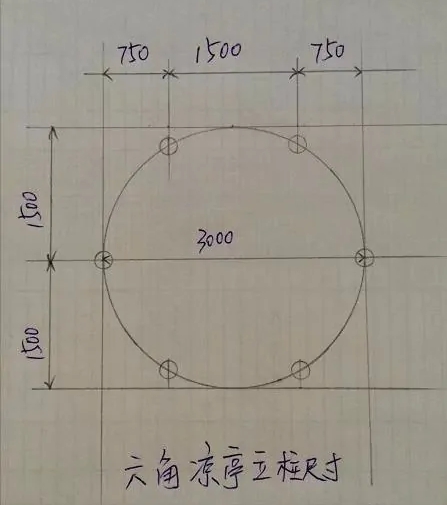 750 1500 750
1500
3000
1500
六角凉亭立柱尺寸